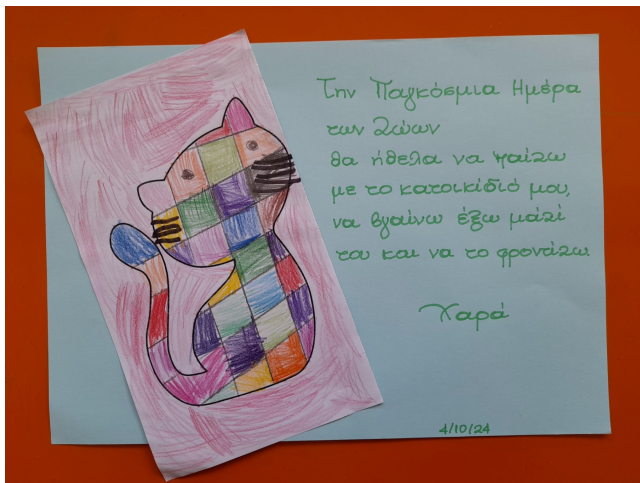 Την Παγκόσμια Ημέρα
των Ζώων
θα ήθελα να παίζω
με το κατοικίδιό μου,
να βγαίνω έξω μαζί
του και να το φροντίζω.
Χαρά
4/10/24